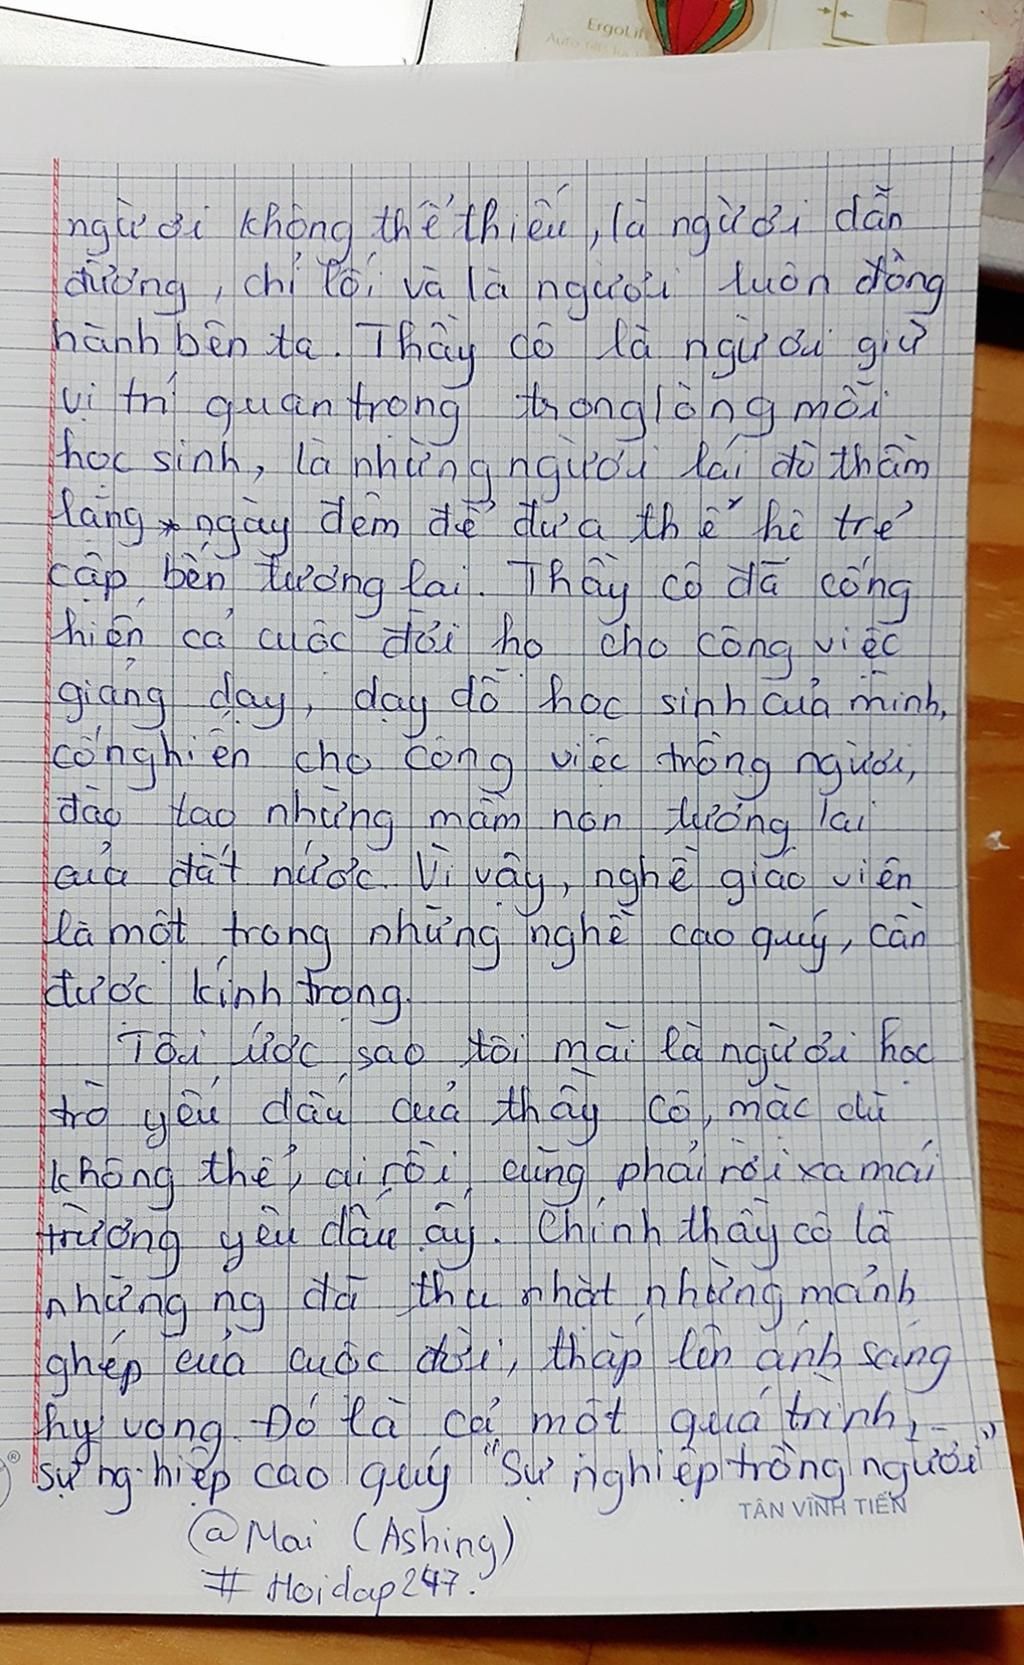 ErgoLif
người không thể thiếu, là người dẫn
đường, chỉ lối và là người luôn đồng
hành bên ta. Thầy cô là người giữ
vị trí quan trọng trong lòng mỗi
học sinh, là những người lái đò thầm
lặng ngày đêm để đưa thế hệ trẻ
cập bến tương lai. Thầy cô đã cống
hiến cả cuộc đời họ cho công việc
giảng dạy, dạy dỗ học sinh của mình,
cống hiến cho công việc trồng người,
đào tạo những mầm non tương lai
của đất nước. Vì vậy, nghề giáo viên
là một trong những nghề cao quý, cần
được kính trọng.
Tôi ước sao tôi mãi là người học
trò yêu dấu của thầy cô, mặc dù
không thể, ai rồi cũng phải rời xa mái
trường yêu dấu ấy. Chính thầy cô là
những ng đã thu nhặt những mảnh
ghép của cuộc đời, thắp lên ánh sáng
hy vọng. Đó là cả một quá trình,
sự nghiệp cao quý "Sự nghiệp trồng người"
TÂN VĨNH TIẾN
@Mai (Ashing)
#Hoidap247.